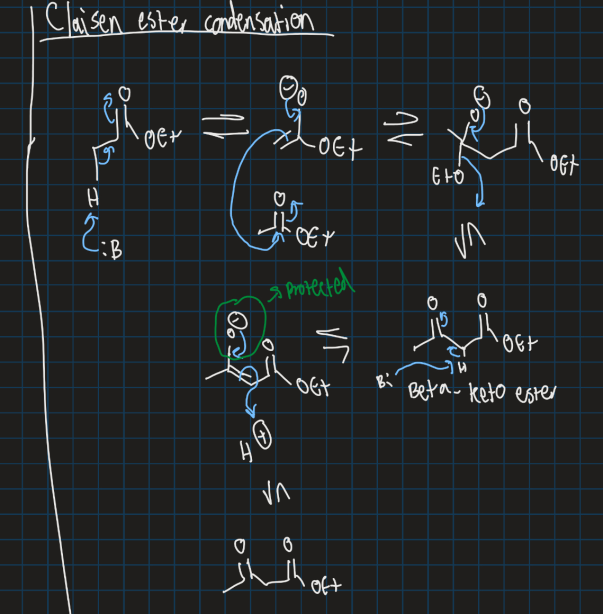 Claisen ester condensation
O
OEt
H
:B
⊖
O
OEt
O
OEt
⊖
O
O
EtO
OEt
protected
⊖
O
O
OEt
H⊕
O
O
OEt
H
B:
Beta-keto ester
O
O
OEt